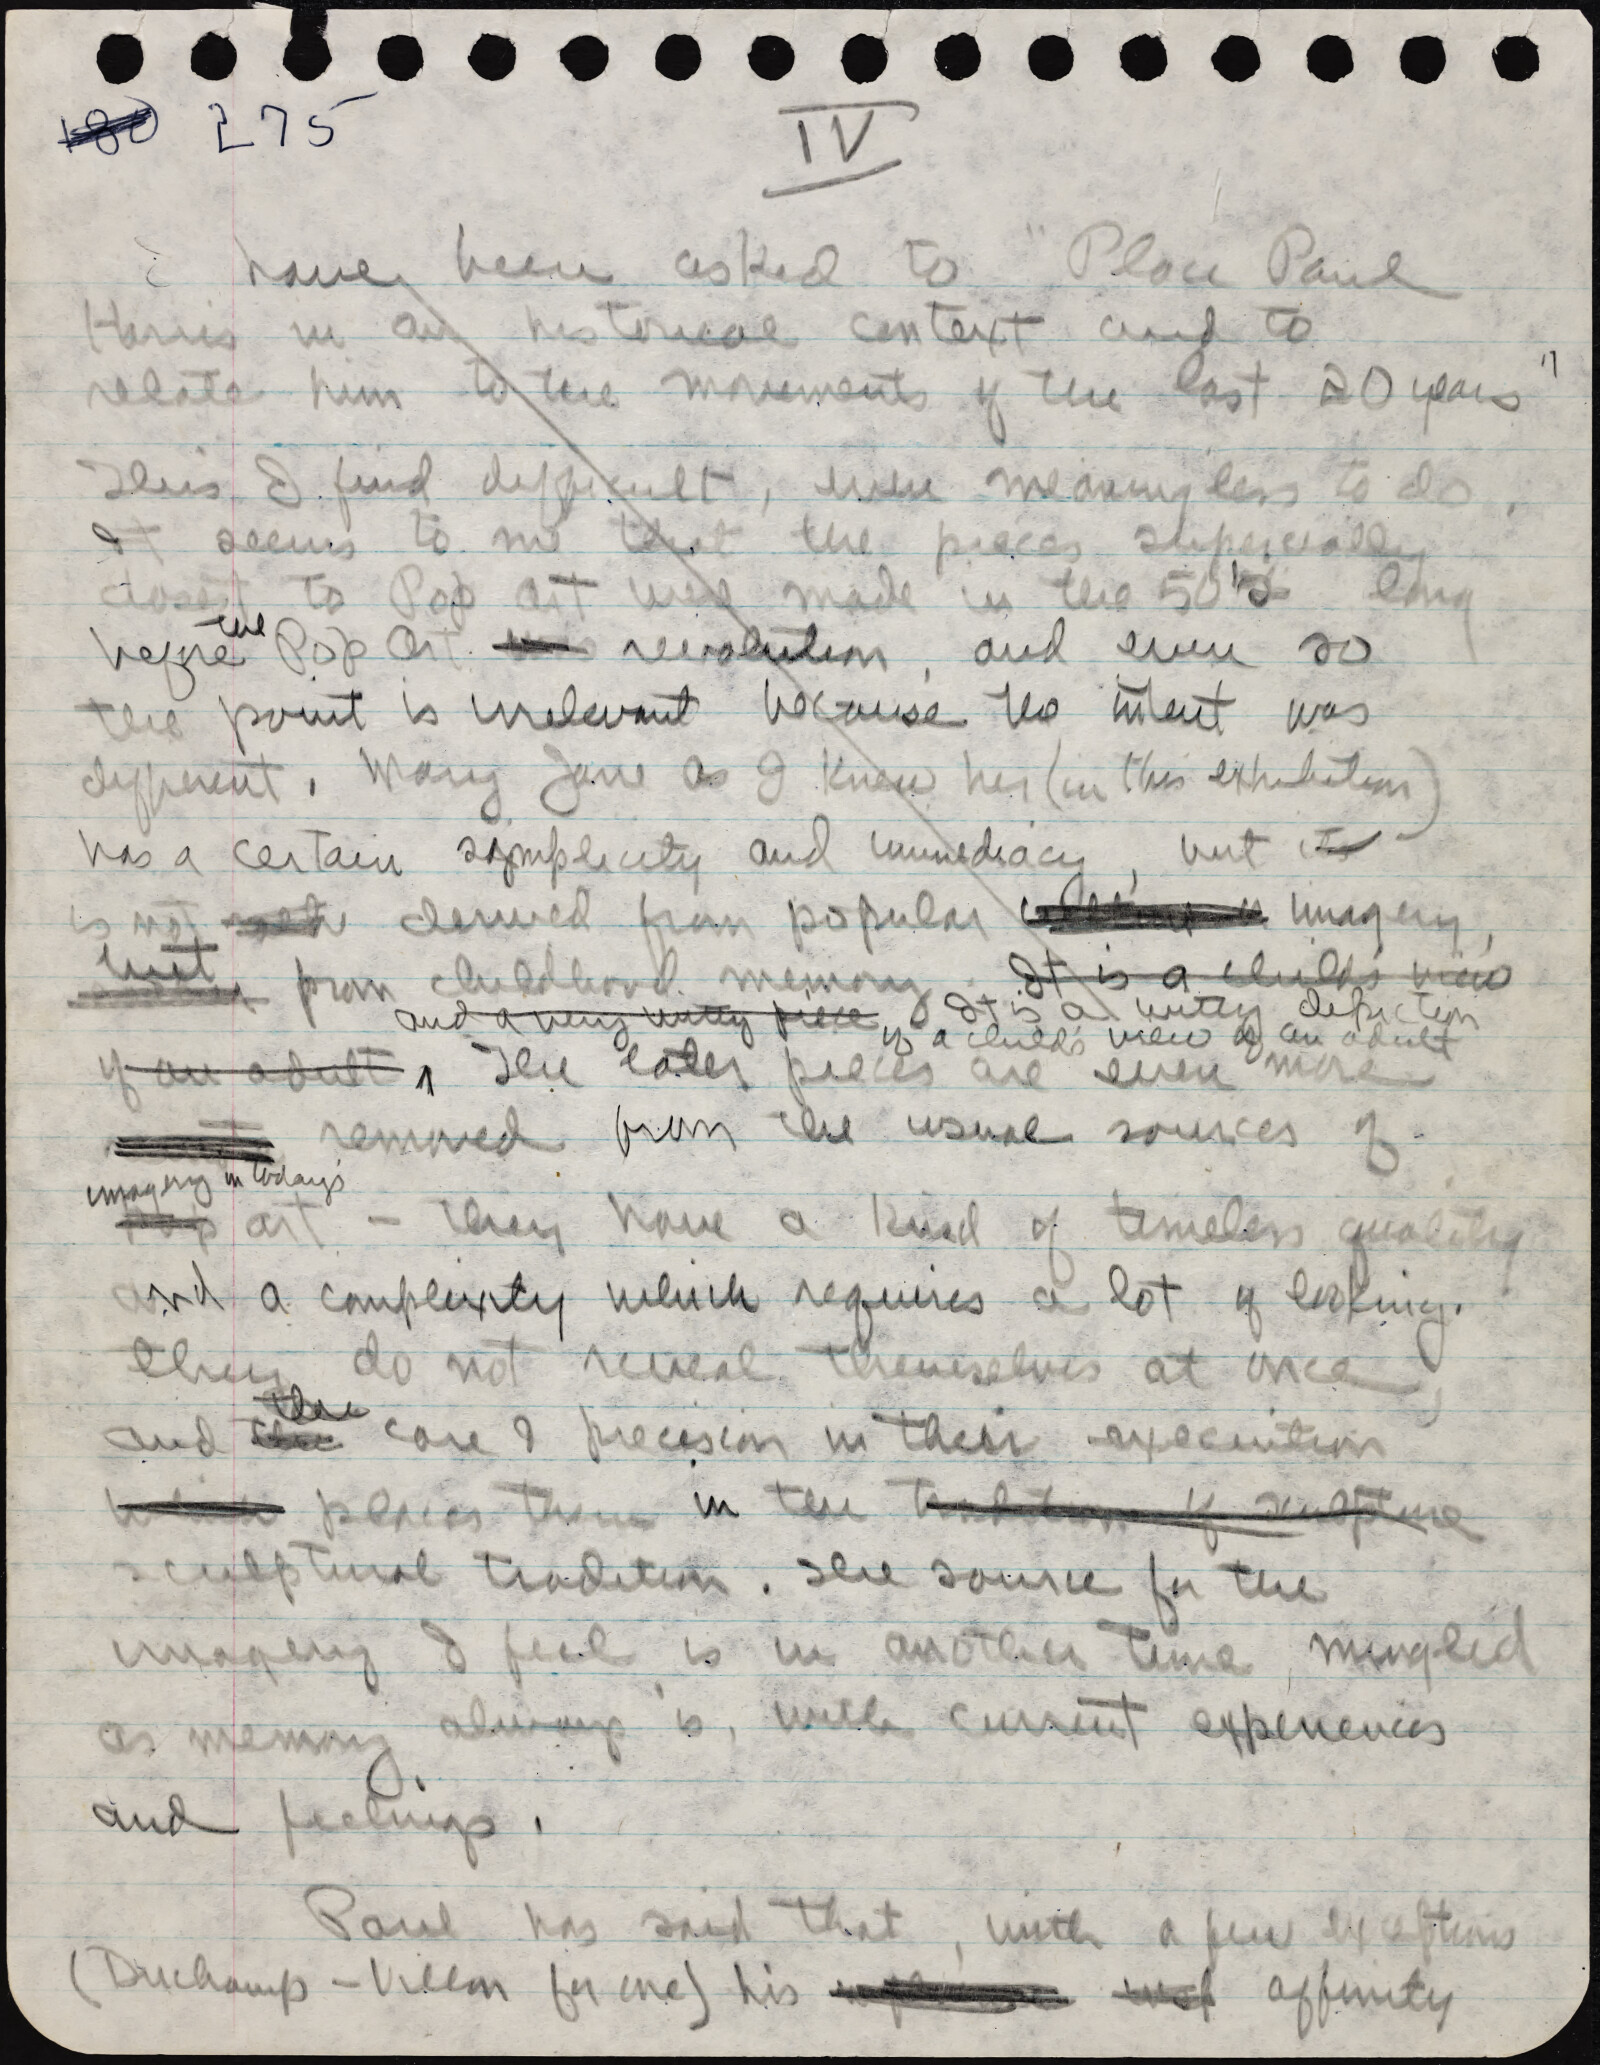 180 275
IV
I have been asked to "Place Paul
Harris in an historical context and to
relate him to the movements of the last 20 years"
This I find difficult, even meaningless to do.
It seems to me that the pieces superficially
closest to Pop Art were made in the 50's long
before the Pop Art revolution, and even so
the point is irrelevant because the intent was
different. Mary Jane as I knew her (in this exhibition)
has a certain simplicity and immediacy, but it
is not derived from popular imagery,
but from childhood memory. It is a child's view
and a very witty piece It is a witty depiction
of a child's view of an adult
of an adult The later pieces are even more
removed from the usual sources of
imagery in today's
Pop art - they have a kind of timeless quality
and a complexity which requires a lot of looking.
They do not reveal themselves at once,
the
and the care & precision in their execution
which places them in the tradition of sculpture
sculptural tradition. The source for the
imagery I feel is in another time, mingled
as memory always is, with current experiences
and feelings.
Paul has said that, with a few exceptions
(Duchamp-Villon for one) his affinity